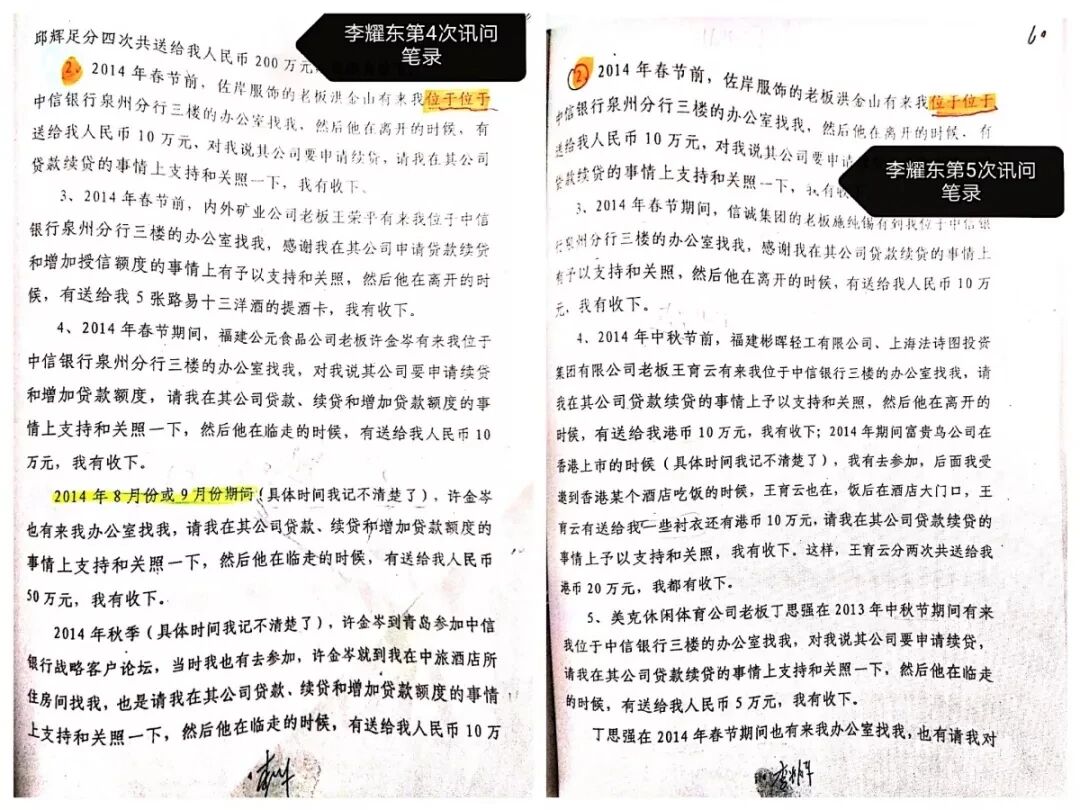 邱辉足分四次共送给我人民币 200 万元
李耀东第4次讯问
笔录
2、2014 年春节前，佐岸服饰的老板洪金山有来我位于位于
中信银行泉州分行三楼的办公室找我，然后他在离开的时候，有
送给我人民币 10 万元，对我说其公司要申请续贷，请我在其公司
贷款续贷的事情上支持和关照一下，我有收下。
3、2014 年春节前，内外矿业公司老板王荣平有来我位于中信
银行泉州分行三楼的办公室找我，感谢我在其公司申请贷款续贷
和增加授信额度的事情上有予以支持和关照，然后他在离开的时
候，有送给我 5 张路易十三洋酒的提酒卡，我有收下。
4、2014 年春节期间，福建公元食品公司老板许金岑有来我位于
中信银行泉州分行三楼的办公室找我，对我说其公司要申请续贷
和增加贷款额度，请我在其公司贷款、续贷和增加贷款额度的事
情上支持和关照一下，然后他在临走的时候，有送给我人民币 10
万元，我有收下。
2014 年 8 月份或 9 月份期间（具体时间我记不清楚了），许金岑
也有来我办公室找我，请我在其公司贷款、续贷和增加贷款额度的
事情上支持和关照一下，然后他在临走的时候，有送给我人民币
50 万元，我有收下。
2014 年秋季（具体时间我记不清楚了），许金岑到青岛参加中信
银行战略客户论坛，当时我也有去参加，许金岑就到我在中旅酒店所
住房间找我，也是请我在其公司贷款、续贷和增加贷款额度的事情
上支持和关照一下，然后他在临走的时候，有送给我人民币 10 万
60
2、2014 年春节前，佐岸服饰的老板洪金山有来我位于位于
中信银行泉州分行三楼的办公室找我，然后他在离开的时候，有
送给我人民币 10 万元，对我说其公司要申请
贷款续贷的事情上支持和关照一下，我有收下
李耀东第5次讯问
笔录
3、2014 年春节期间，信诚集团的老板施纯锡有到我位于中信银
行泉州分行三楼的办公室找我，感谢我在其公司贷款续贷的事情上
有予以支持和关照，然后他在离开的时候，有送给我人民币 10 万
元，我有收下。
4、2014 年中秋节前，福建彬晖轻工有限公司、上海法诗图投资
集团有限公司老板王育云有来我位于中信银行三楼的办公室找我，请
我在其公司贷款续贷的事情上予以支持和关照，然后他在离开的
时候，有送给我港币 10 万元，我有收下；2014 年期间富贵鸟公司在
香港上市的时候（具体时间我记不清楚了），我有去参加，后面我受
邀到香港某个酒店吃饭的时候，王育云也在，饭后在酒店大门口，王
育云有送给我一些衬衣还有港币 10 万元，请我在其公司贷款续贷的
事情上予以支持和关照，我有收下。这样，王育云分两次共送给我
港币 20 万元，我都有收下。
5、美克休闲体育公司老板丁思强在 2013 年中秋节期间有来
我位于中信银行三楼的办公室找我，对我说其公司要申请续贷，
请我在其公司贷款续贷的事情上支持和关照一下，然后他在临走
的时候，有送给我人民币 5 万元，我有收下。
丁思强在 2014 年春节期间也有来我办公室找我，也有请我对